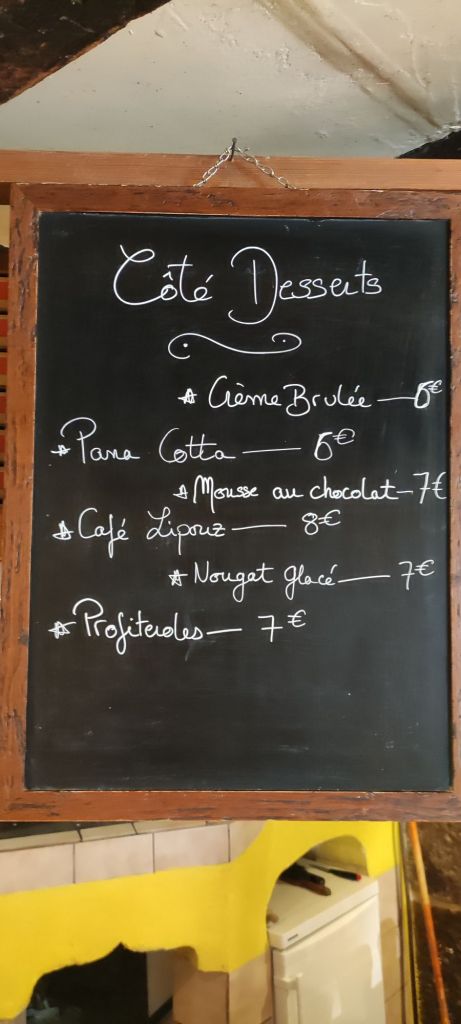 Côté Desserts
Crème Brulée — 6€
Pana Cotta — 6€
Mousse au chocolat - 7€
Café Lipouz — 8€
Nougat glacé — 7€
Profiteroles — 7€